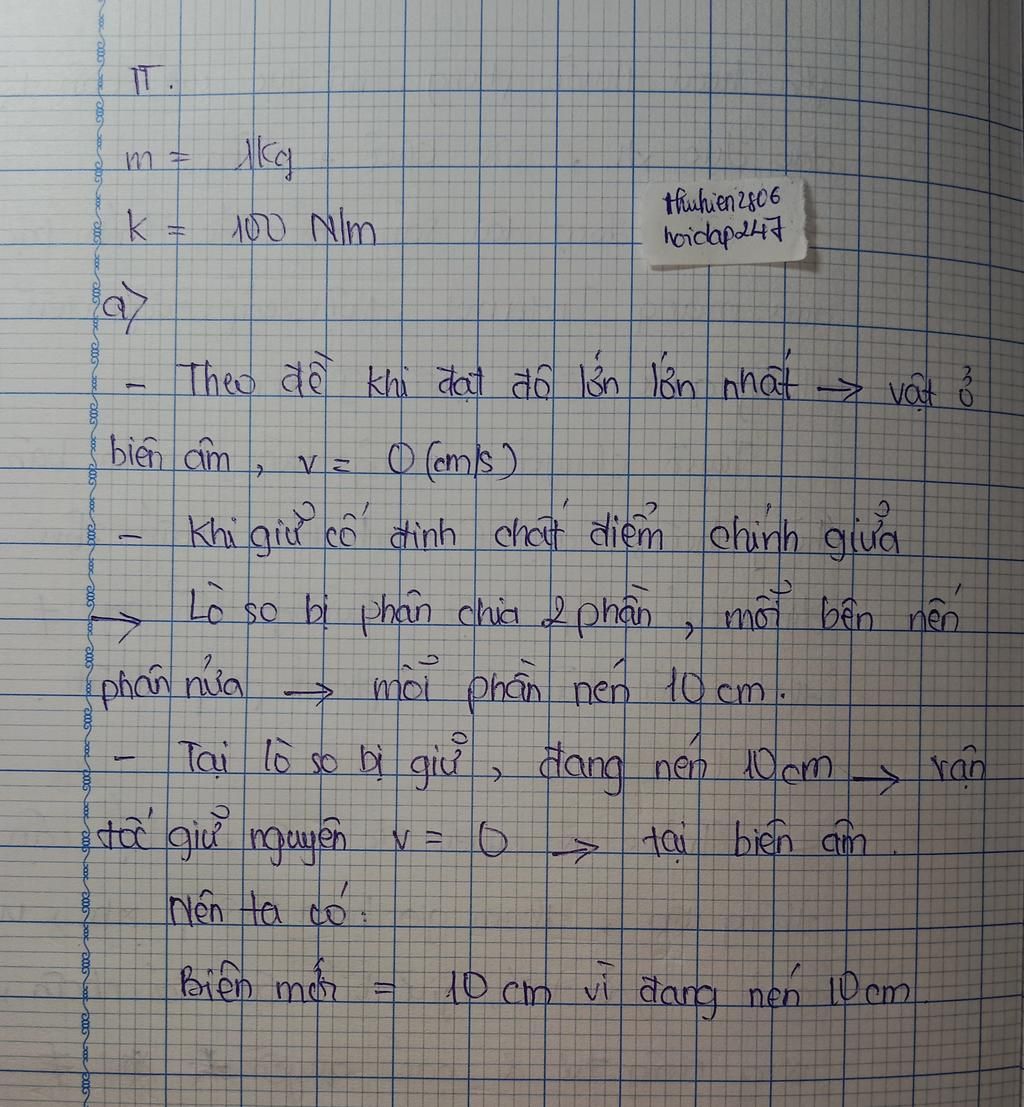 II.
m = 1kg
thuhien2806
k = 100 N/m
hoidap247
a>
- Theo đề khi đạt độ lớn lớn nhất → vật ở
biên âm, v = 0 (cm/s)
- Khi giữ cố định chất điểm chính giữa
→ Lò so bị phân chia 2 phần, mỗi bên nén
phân nửa → mỗi phần nén 10 cm.
- Tại lò so bị giữ, đang nén 10 cm → vận
tốc giữ nguyên v = 0 → tại biên âm.
Nên ta có:
Biên mới = 10 cm vì đang nén 10 cm